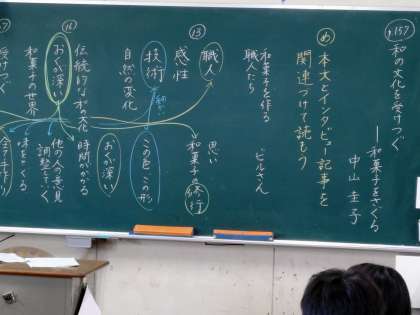 p.157
和の文化を受けつぐ
―和菓子をさぐる
中山圭子
め
本文とインタビュー記事を
関連づけて読もう
和菓子を作る
職人たち
ビルさん
⑬
職人
感性
技術
自然の変化
思い
和菓子の
この色 この形
おくが深い
⑯
伝統的な和の文化
おくが深い
和菓子の世界
受けつぐ
時間がかかる
他の人の意見
調整していく
味をつくる